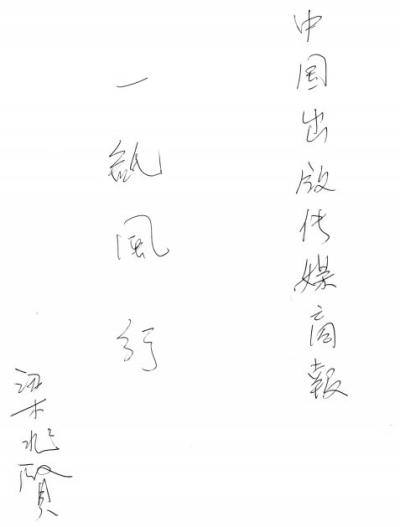 中国出版传媒商報
一紙風行
梁兆賢